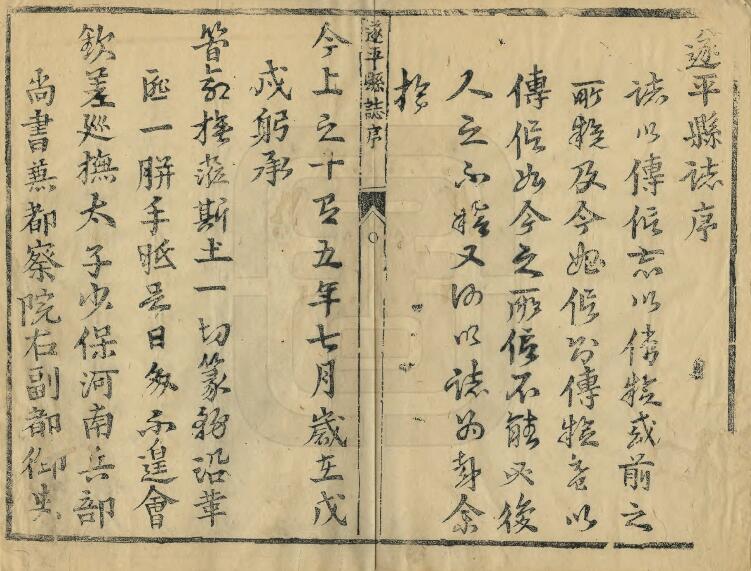 遂平縣誌序
誌以傳信亦以傳疑或前之
所疑及今始信為傳疑意以
傳信如今之所信不能必後
人之不疑又何以誌為耶余
於
遂平縣誌序
今上之十五年七月歲在戊
戌躬承
簡命撫茲斯土一切篆務沿革
匪一胼手胝足日亦不遑會
欽差巡撫太子少保河南兵部
尚書兼都察院右副都御史